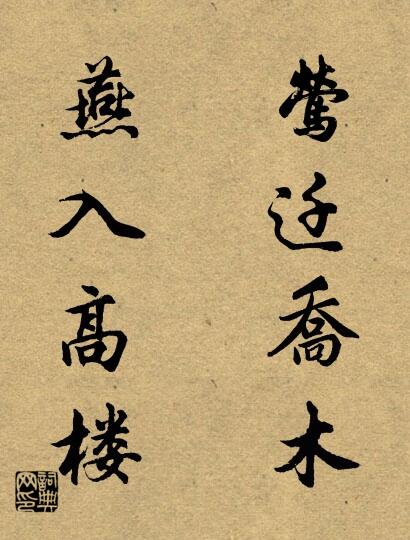 莺迁喬木
燕入高楼
詞典网印